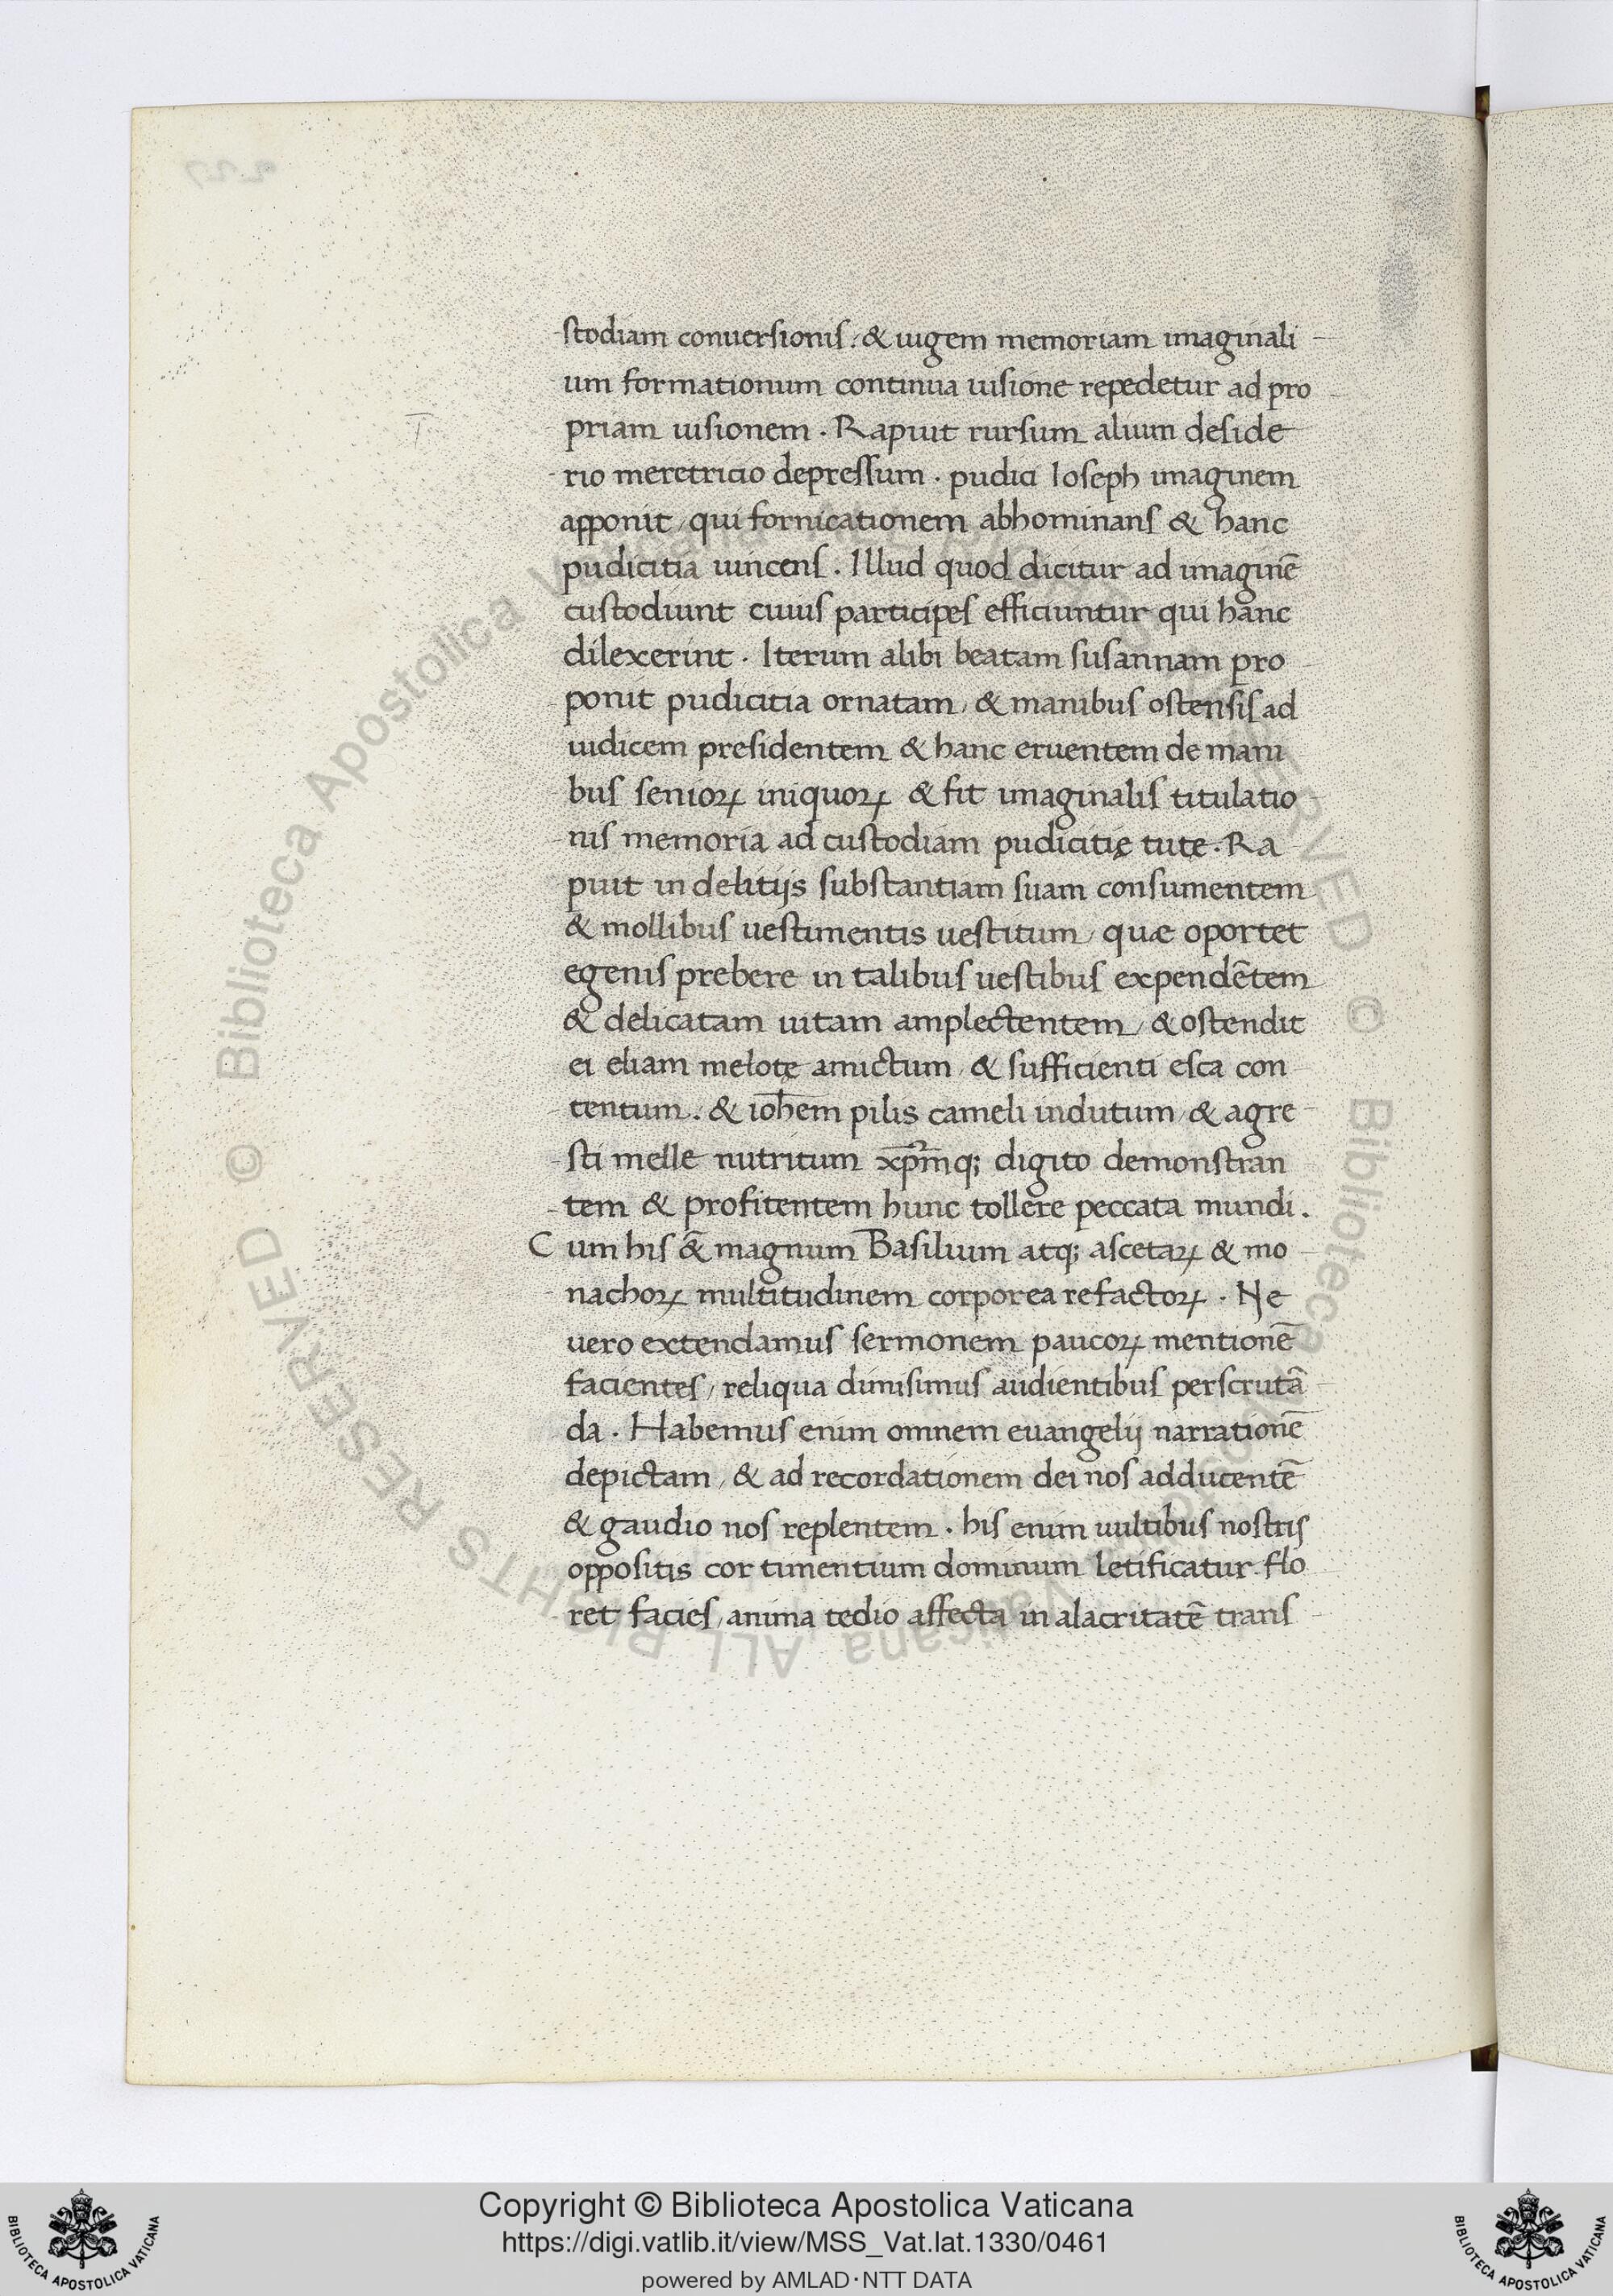 stodiam conuersionis. & iugem memoriam imaginali
um formationum continua uisione repedetur ad pro
priam uisionem. Rapuit rursum alium deside
rio meretricio depressum. pudici Ioseph imaginem
apponit, qui fornicationem abhominans & hanc
pudicitia uincens. Illud quod dicitur ad imaginē
custodiunt cuius participes efficiuntur qui hanc
dilexerint. Iterum alibi beatam susannam pro
ponit pudicitia ornatam, & manibus ostensis ad
iudicem presidentem & hanc eruentem de mani
bus senioꝝ iniquoꝝ & fit imaginalis titulatio
nis memoria ad custodiam pudicitię tute. Ra
puit in delitijs substantiam suam consumentem
& mollibus uestimentis uestitum, quæ oportet
egenis prebere in talibus uestibus expendētem
& delicatam uitam amplectentem, & ostendit
ei eliam melote amictum, & sufficienti esca con
tentum. & ioh̄em pilis cameli indutum, & agre
sti melle nutritum xp̄mq; digito demonstran
tem & profitentem hunc tollere peccata mundi.
Cum his & magnum Basilium atq; ascetaꝝ & mo
nachoꝝ multitudinem corporea refactoꝝ. Ne
uero extendamus sermonem paucoꝝ mentionē
facientes, reliqua dimisimus audientibus perscrutā
da. Habemus enim omnem euangelij narrationē
depictam, & ad recordationem dei nos adducentē
& gaudio nos replentem. his enim uultibus nostris
oppositis cor timentium dominum letificatur. flo
ret facies, anima tedio affecta in alacritatē trans
227
© Biblioteca Apostolica Vaticana ALL RIGHTS RESERVED
Copyright © Biblioteca Apostolica Vaticana
https://digi.vatlib.it/view/MSS_Vat.lat.1330/0461
powered by AMLAD·NTT DATA
BIBLIOTECA APOSTOLICA VATICANA
BIBLIOTECA APOSTOLICA VATICANA